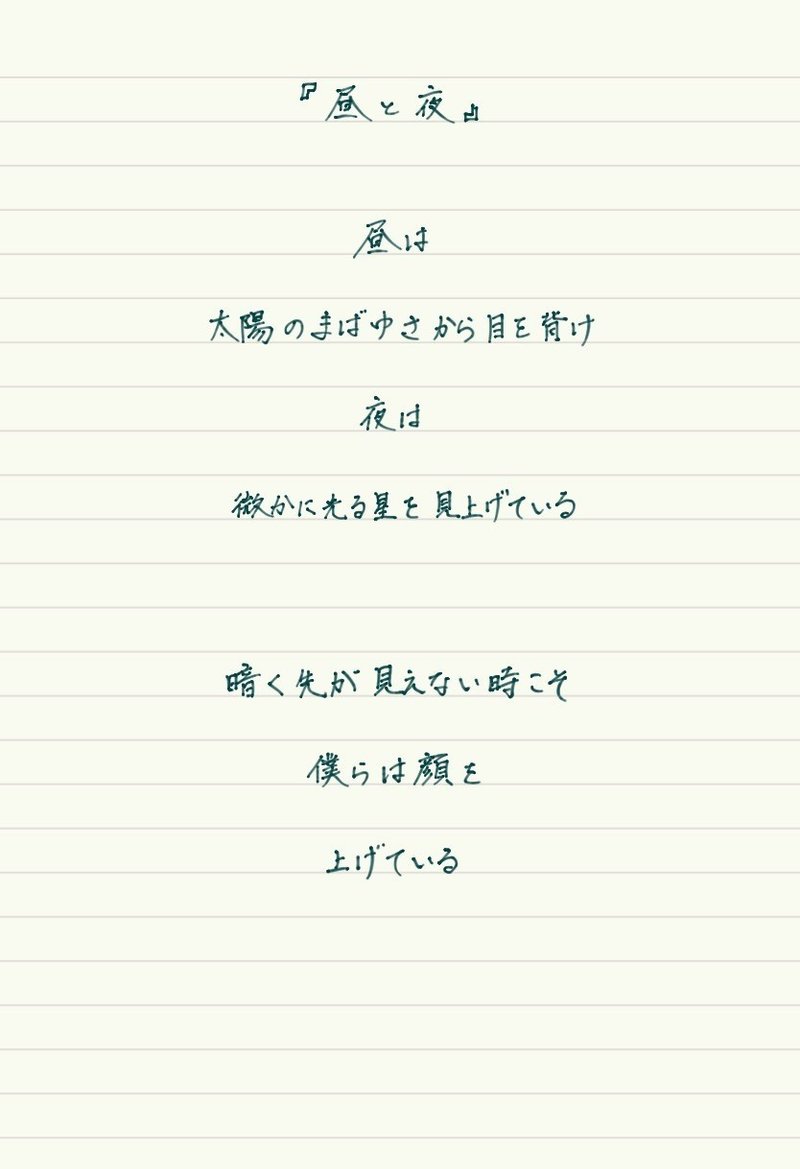 『昼と夜』
昼は
太陽のまばゆさから目を背け
夜は
微かに光る星を見上げている
暗く先が見えない時こそ
僕らは顔を
上げている